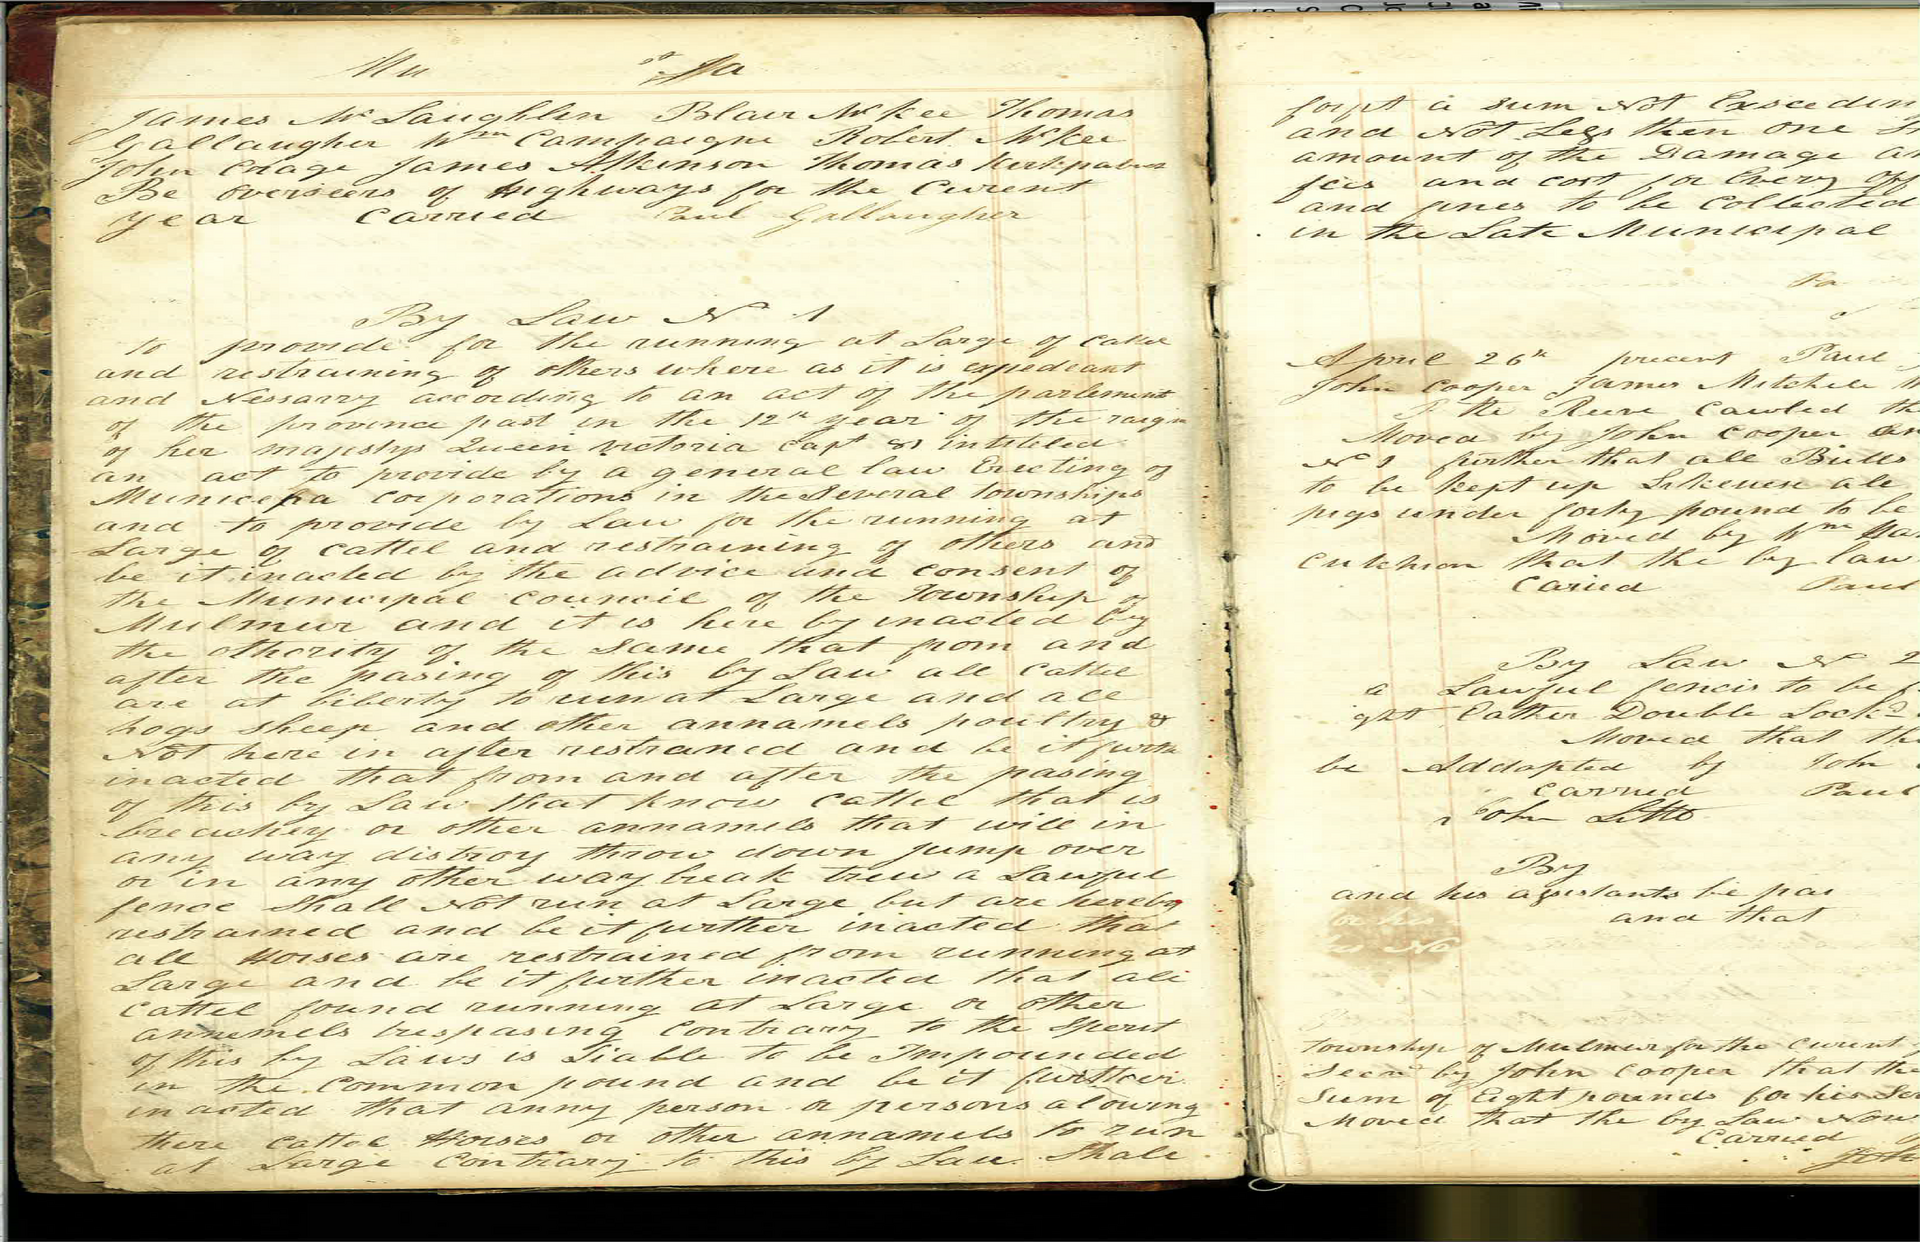 Mu
James McLaughlin Blair McKee Thomas
Gallaugher Wm Campaigne Robert McKee
John Cnage James Atkinson Thomas Kirkpatrick
Be overseers of Highways for the Curent
year Carried Paul Gallaugher
By Law No 1
to provide for the running at Large of Cattel
and restraining of others where as it is expedeant
and Nessarry according to an act of the parlement
of the province past in the 12th year of the raign
of her majestys Queen victoria Capt 81 intiteled
an act to provide by a general law Erecting of
Municepa Corporations in the Several townships
and to provide by Law for the running at
Large of Cattel and restraining of others and
be it inacted by the advice and consent of
the Municipal Council of the Township of
Mulmur and it is here by inacted by
the othority of the Same that from and
after the pasing of this by Law all Cattel
are at liberty to run at Large and all
hogs sheep and other annamels poultry &
Not here in after restrained and be it further
inacted that from and after the pasing
of this by Law that know Cattel that is
breachey or other annamels that will in
any way distroy throw down jump over
or in any other way break trew a Lawful
fence Shall Not run at Large but are hereby
restrained and be it further inacted that
all Horses are restrained from running at
Large and be it further inacted that all
Cattel found running at Large or other
annemels trespasing Contrary to the Sperit
of this by Laws is Liable to be Impounded
in the Common pound and be it further
inacted that anny person or persons alowing
there Cattel Horses or other annamels to run
at Large Contrary to this by Law Shall
forfit a Sum Not Exscedin
and Not Less then one
amount of the Damage an
fees and cost for Every off
and fines to be Collected
in the Late Municipal
April 26th precent Paul
John Cooper James Mitchell
The Reeve Cawled the
Moved by John Cooper an
No 1 further that all Bulls
to be kept up Likewise all
pigs under forty pound to be
Moved by Wm
Cutcheon that the by law
Caried Paul
By Law No 2
a Lawful fencis to be
ght Eather Double Lockd
Moved that the
be Addopted by John
Carried Paul
John Little
By
and his asistants be pai
and that
or his
his No
township of Mulmur for the Curent
Secnd by John Cooper that the
Sum of Eight pounds for his Ser
Moved that the by Law Now
Carried
John